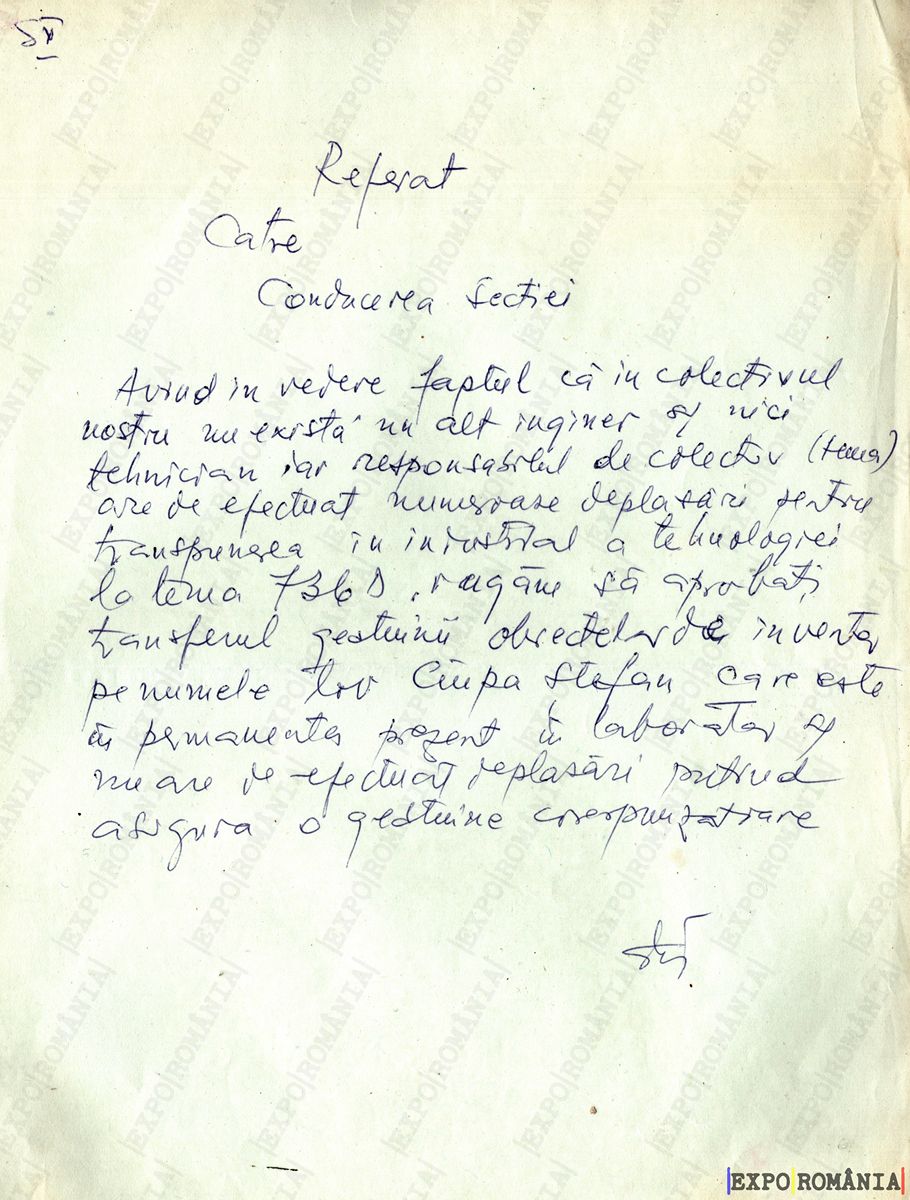 Referat
Catre
Conducerea Sectiei
Avind in vedere faptul că in colectivul
nostru nu există un alt inginer și nici
tehnician iar responsabilul de colectiv (tema)
are de efectuat numeroase deplasări pentru
transpunerea in industrial a tehnologiei
la tema 736D, rugăm să aprobați
transferul gestiunii obiectelor de inventar
pe numele tov Ciupa Stefan care este
în permanenta prezent în laborator și
nu are de efectuat deplasări putind
asigura o gestiune corespunzatoare
EXPO ROMÂNIA